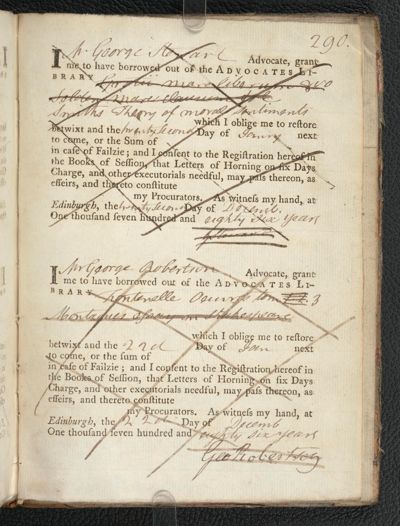 290.
I Mr George Advocate, grant
me to have borrowed out of the ADVOCATES LI-
BRARY Grotii mare liberum 8vo
Selden mare clausum
Smiths Theory of moral sentiments
which I oblige me to restore
betwixt and the twenty second Day of Janry next
to come, or the Sum of
in case of Failzie; and I consent to the Registration hereof in
the Books of Session, that Letters of Horning on six Days
Charge, and other executorials needful, may pass thereon, as
effeirs, and thereto constitute
my Procurators. As witness my hand, at
Edinburgh, the twenty second Day of Decemb.
One thousand seven hundred and eighty six years
I Mr George Robertson Advocate, grant
me to have borrowed out of the ADVOCATES LI-
BRARY Fontenelle Oeuvres tom 3
Montagues essay on Shakespeare
which I oblige me to restore
betwixt and the 22d Day of Jan next
to come, or the sum of
in case of Failzie; and I consent to the Registration hereof in
the Books of Session, that Letters of Horning on six Days
Charge, and other executorials needful, may pass thereon, as
effeirs, and thereto constitute
my Procurators. As witness my hand, at
Edinburgh, the 22d Day of Decemb
One thousand seven hundred and eighty six years
Geo Robertson